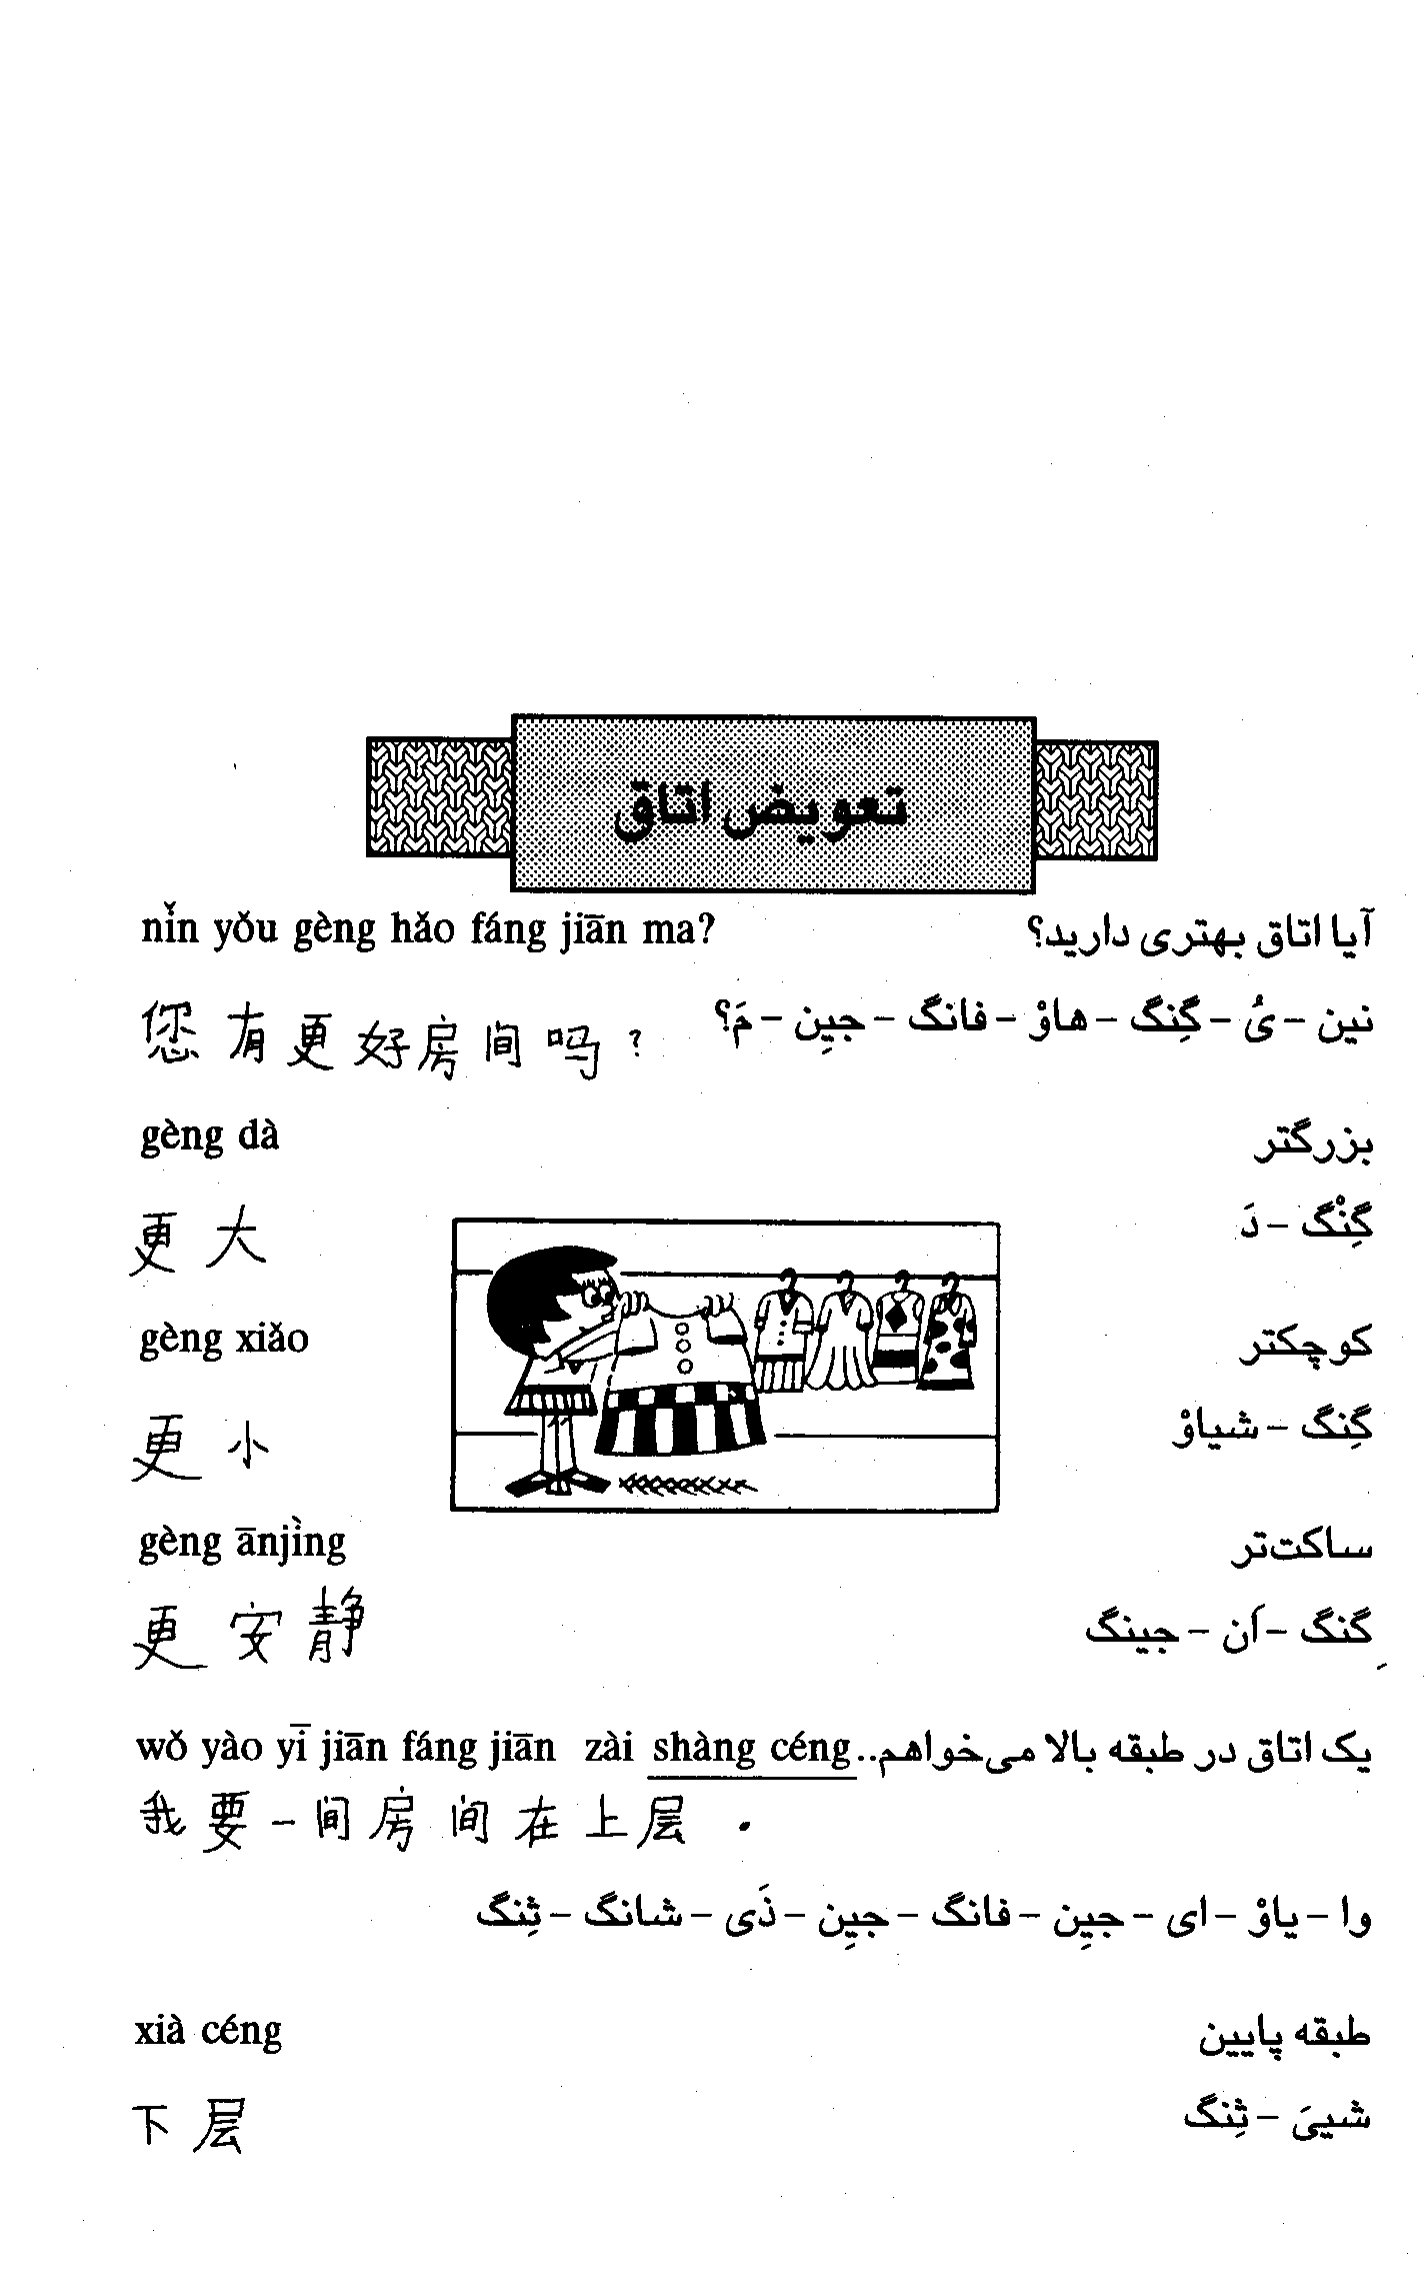 تعویض اتاق
nǐn yǒu gèng hǎo fáng jiān ma? آیا اتاق بهتری دارید؟
您有更好房间吗? نین - یُ - گِنگ - هاوْ - فانگ - جیِن - مَ؟
gèng dà بزرگتر
更大 گِنْگ - دَ
gèng xiǎo کوچکتر
更小 گِنگ - شیاوْ
gèng ānjìng ساکت‌تر
更安静 گِنگ - اَن - جینگ
wǒ yào yī jiān fáng jiān zài shàng céng یک اتاق در طبقه بالا می‌خواهم..
我要一间房间在上层.
وا - یاوْ - ای - جیِن - فانگ - جیِن - ذَی - شانگ - ثِنگ
xià céng طبقه پایین
下层 شییَ - ثِنگ